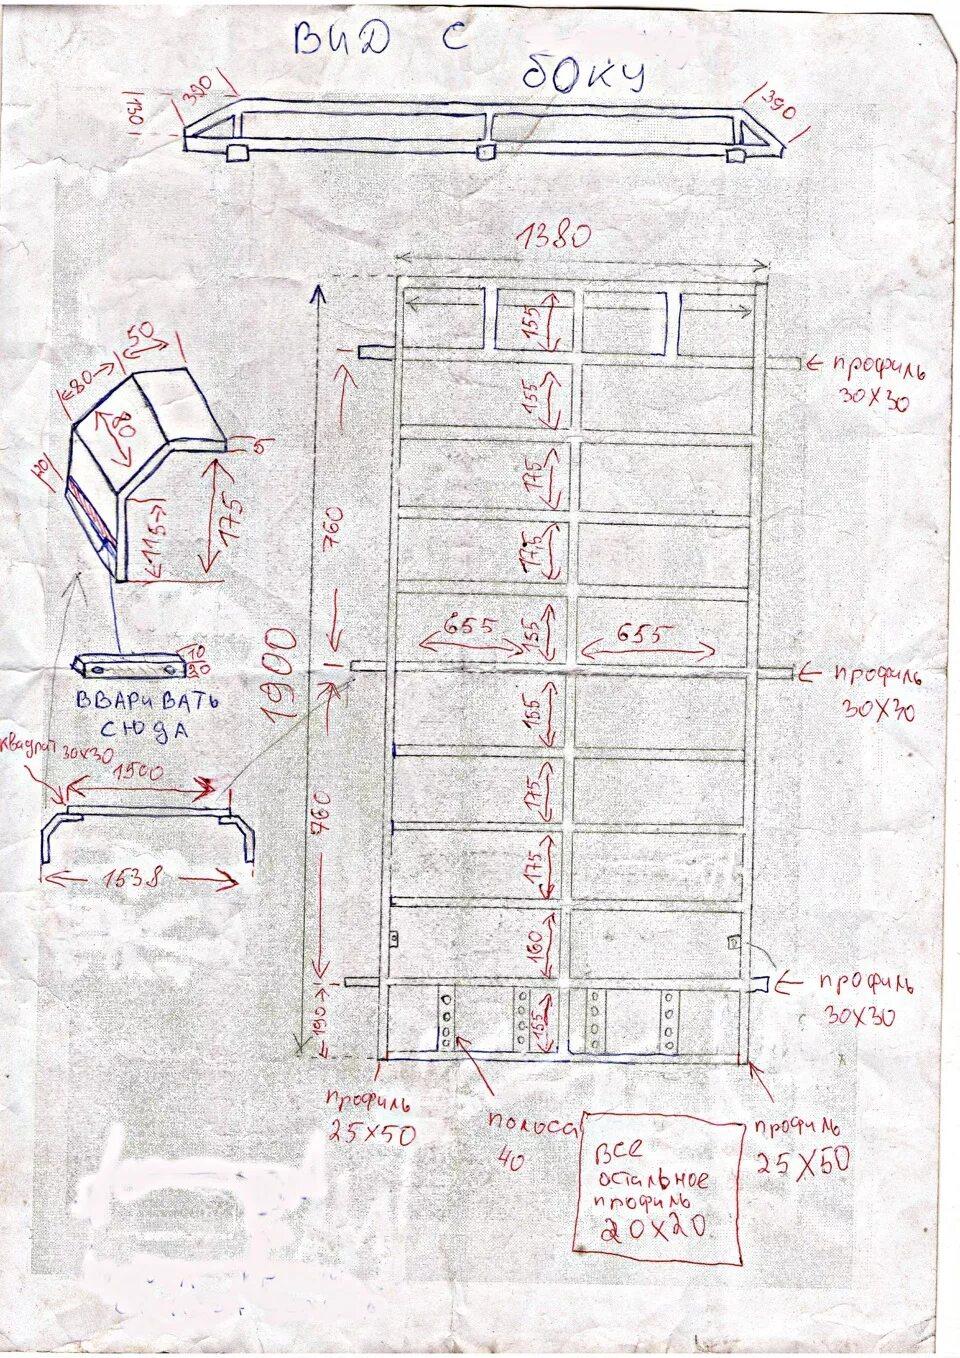 ВИД С
БОКУ
390
130
390
1380
50
80
80
5
20
115
175
10
20
ВВАРИВАТЬ
СЮДА
квадрат 30х30
1500
1538
1900
760
760
190
155
155
175
175
155
655
655
155
175
175
160
155
профиль
30х30
профиль
30х30
профиль
30х30
профиль
25х50
полоса
40
все
остальное
профиль
20х20
профиль
25х50